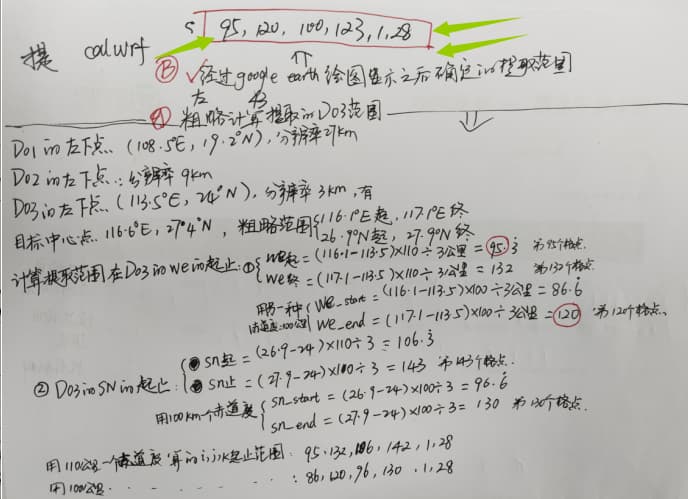 95, 120, 100, 123, 1, 28
提 calwrf
B ✓经过google earth绘图显示之后确定的提取范围
左
粗略计算提取的D03范围
D01的左下点 (108.5°E, 19.2°N), 分辨率27km
D02的左下点: 分辨率 9km
D03的左下点 (113.5°E, 24°N), 分辨率 3km, 有
目标中心点 116.6°E, 27.4°N, 粗略范围 { 116.1°E起, 117.1°E终
26.9°N起, 27.9°N终
计算提取范围在D03的we的起止: ① { we起 = (116.1-113.5)×110÷3公里 = 95.3 第95个格点.
we终 = (117.1-113.5)×110÷3公里 = 132 第132个格点.
用另一种 { we_start = (116.1-113.5)×100÷3公里 = 86.6
we_end = (117.1-113.5)×100÷3公里 = 120 第120个格点.
② D03的SN的起止: { sn起 = (26.9-24)×110÷3 = 106.3
sn止 = (27.9-24)×110÷3 = 143 第143个格点.
用100km一个赤道度 { sn_start = (26.9-24)×100÷3 = 96.6
sn_end = (27.9-24)×100÷3 = 130 第130个格点.
用110公里一个赤道度算的i,j,k起止范围: 95, 132, 106, 142, 1, 28
用100公里 . . . . . . : 86, 120, 96, 130, 1, 28